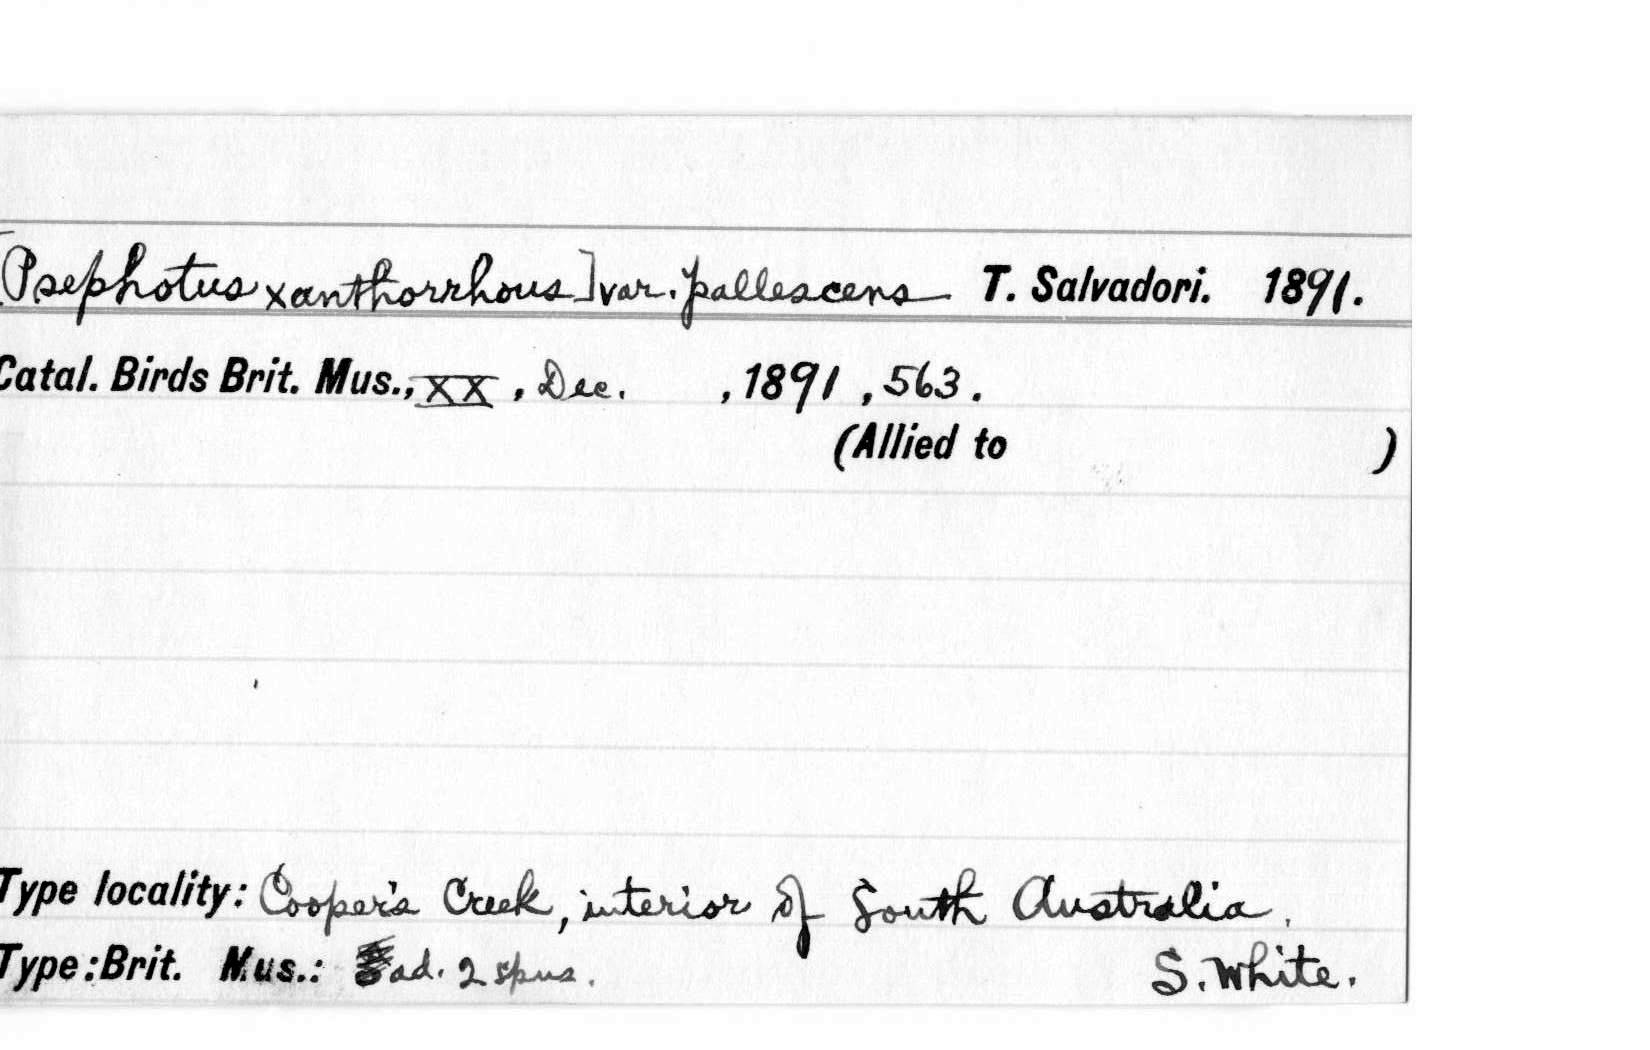 [Psephotus xanthorrhous] var. pallescens T. Salvadori. 1891.
Catal. Birds Brit. Mus., XX, Dec. , 1891, 563.
(Allied to )
Type locality: Cooper's Creek, interior of South Australia.
Type: Brit. Mus.: ad. 2 spns. S. White.